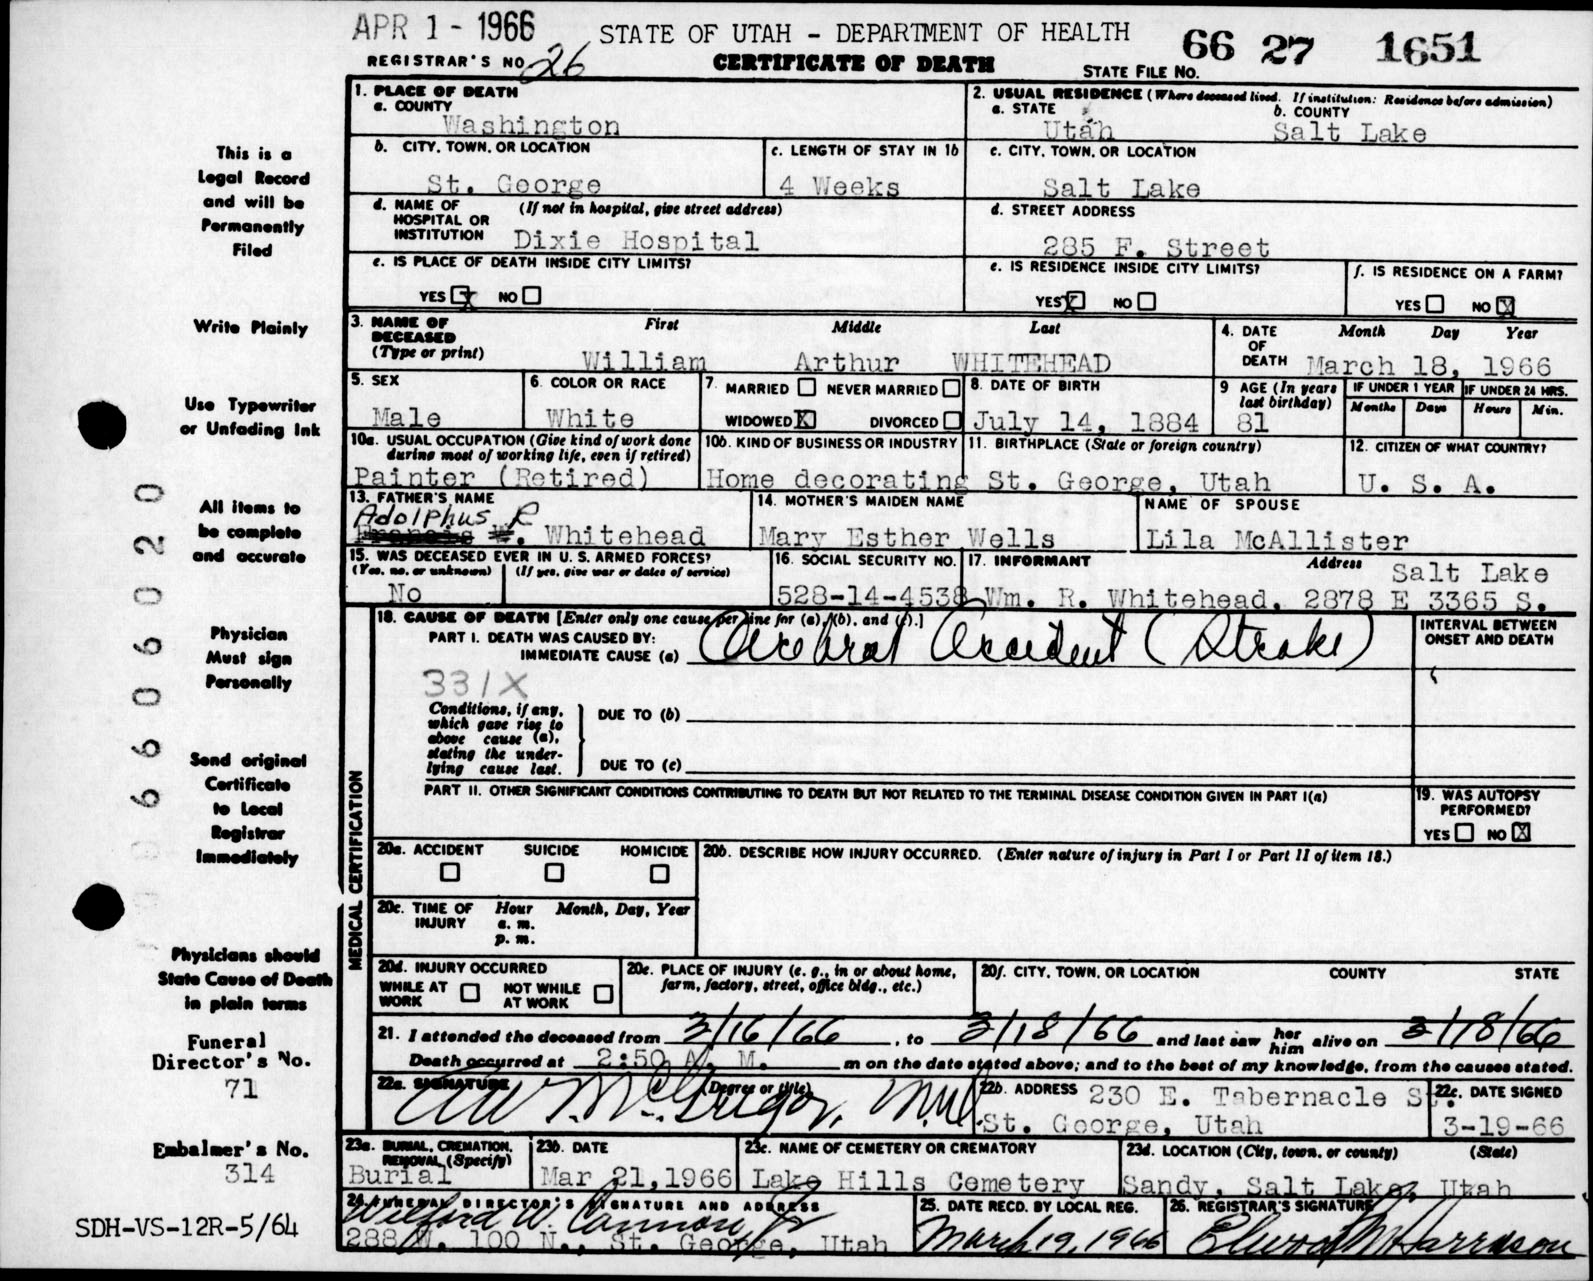 APR 1 - 1966
STATE OF UTAH - DEPARTMENT OF HEALTH
66 27 1651
REGISTRAR'S NO. 26
CERTIFICATE OF DEATH
STATE FILE NO.
1. PLACE OF DEATH
a. COUNTY
Washington
2. USUAL RESIDENCE (Where deceased lived. If institution: Residence before admission)
a. STATE b. COUNTY
Utah Salt Lake
b. CITY, TOWN, OR LOCATION
St. George
c. LENGTH OF STAY IN 1b
4 Weeks
c. CITY, TOWN, OR LOCATION
Salt Lake
d. NAME OF HOSPITAL OR INSTITUTION (If not in hospital, give street address)
Dixie Hospital
d. STREET ADDRESS
285 F. Street
e. IS PLACE OF DEATH INSIDE CITY LIMITS?
YES X NO
e. IS RESIDENCE INSIDE CITY LIMITS?
YES X NO
f. IS RESIDENCE ON A FARM?
YES NO X
3. NAME OF DECEASED (Type or print)
First Middle Last
William Arthur WHITEHEAD
4. DATE OF DEATH
Month Day Year
March 18, 1966
5. SEX
Male
6. COLOR OR RACE
White
7. MARRIED NEVER MARRIED
WIDOWED X DIVORCED
8. DATE OF BIRTH
July 14, 1884
9 AGE (In years last birthday)
81
IF UNDER 1 YEAR
Months Days
IF UNDER 24 HRS.
Hours Min.
10a. USUAL OCCUPATION (Give kind of work done during most of working life, even if retired)
Painter (Retired)
10b. KIND OF BUSINESS OR INDUSTRY
Home decorating
11. BIRTHPLACE (State or foreign country)
St. George, Utah
12. CITIZEN OF WHAT COUNTRY?
U. S. A.
13. FATHER'S NAME
Adolphus R
Francis W. Whitehead
14. MOTHER'S MAIDEN NAME
Mary Esther Wells
NAME OF SPOUSE
Lila McAllister
15. WAS DECEASED EVER IN U. S. ARMED FORCES?
(Yes, no, or unknown) (If yes, give war or dates of service)
No
16. SOCIAL SECURITY NO.
528-14-4538
17. INFORMANT Address
Salt Lake
Wm. R. Whitehead, 2878 E 3365 S.
MEDICAL CERTIFICATION
18. CAUSE OF DEATH [Enter only one cause per line for (a), (b), and (c).]
PART I. DEATH WAS CAUSED BY:
IMMEDIATE CAUSE (a) Cerebral Accident (Stroke)
INTERVAL BETWEEN ONSET AND DEATH
331X
Conditions, if any, which gave rise to above cause (a), stating the underlying cause last.
DUE TO (b)
DUE TO (c)
PART II. OTHER SIGNIFICANT CONDITIONS CONTRIBUTING TO DEATH BUT NOT RELATED TO THE TERMINAL DISEASE CONDITION GIVEN IN PART I(a)
19. WAS AUTOPSY PERFORMED?
YES NO X
20a. ACCIDENT SUICIDE HOMICIDE
20b. DESCRIBE HOW INJURY OCCURRED. (Enter nature of injury in Part I or Part II of item 18.)
20c. TIME OF INJURY Hour Month, Day, Year
a. m.
p. m.
20d. INJURY OCCURRED
WHILE AT WORK NOT WHILE AT WORK
20e. PLACE OF INJURY (e. g., in or about home, farm, factory, street, office bldg., etc.)
20f. CITY, TOWN, OR LOCATION COUNTY STATE
21. I attended the deceased from 3/16/66, to 3/18/66 and last saw her him alive on 3/18/66
Death occurred at 2:50 A. M. m on the date stated above; and to the best of my knowledge, from the causes stated.
22a. SIGNATURE (Degree or title)
McGregor, M.D.
22b. ADDRESS 230 E. Tabernacle St.
St. George, Utah
22c. DATE SIGNED
3-19-66
23a. BURIAL, CREMATION, REMOVAL (Specify)
Burial
23b. DATE
Mar 21, 1966
23c. NAME OF CEMETERY OR CREMATORY
Lake Hills Cemetery
23d. LOCATION (City, town, or county) (State)
Sandy, Salt Lake, Utah
24. FUNERAL DIRECTOR'S SIGNATURE AND ADDRESS
288 W. 100 N., St. George, Utah
25. DATE RECD. BY LOCAL REG.
March 19, 1966
26. REGISTRAR'S SIGNATURE
Harrison
This is a
Legal Record
and will be
Permanently
Filed
Write Plainly
Use Typewriter
or Unfading Ink
All items to
be complete
and accurate
Physician
Must sign
Personally
Send original
Certificate
to Local
Registrar
Immediately
Physicians should
State Cause of Death
in plain terms
Funeral
Director's No.
71
Embalmer's No.
314
SDH-VS-12R-5/64